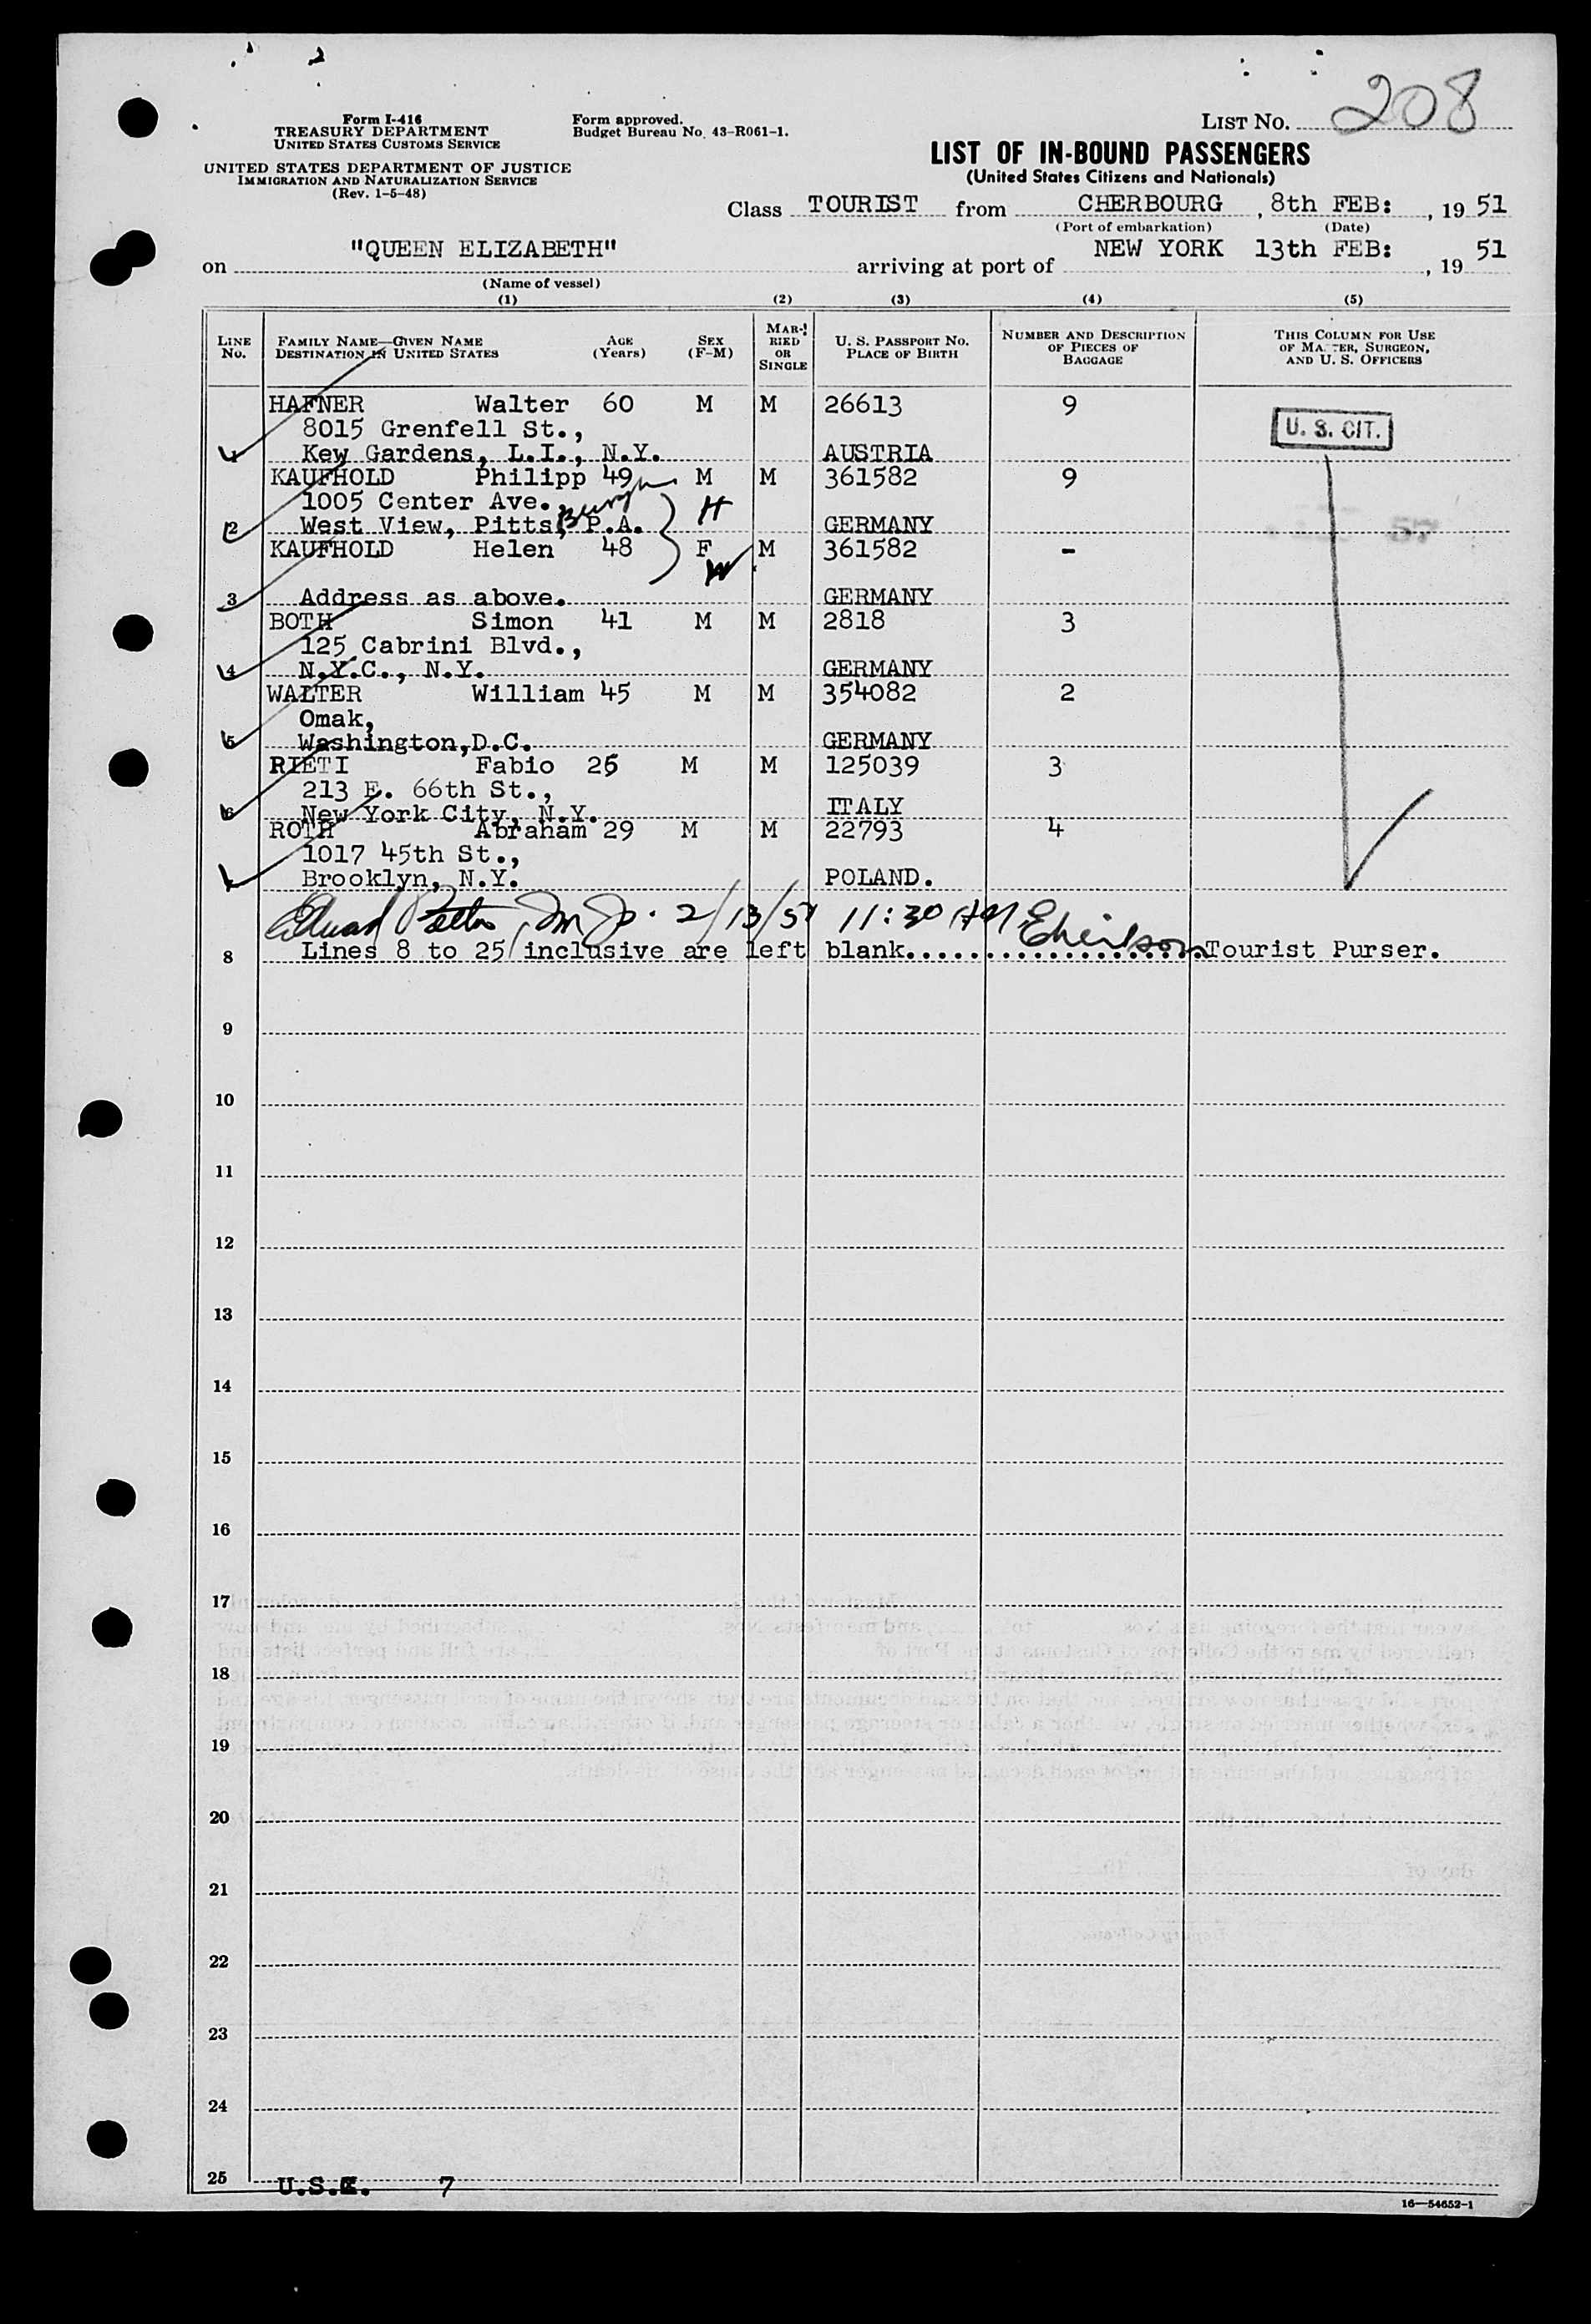 LIST NO. 208
Form I-416
TREASURY DEPARTMENT
UNITED STATES CUSTOMS SERVICE
Form approved.
Budget Bureau No. 43-R061-1.
UNITED STATES DEPARTMENT OF JUSTICE
IMMIGRATION AND NATURALIZATION SERVICE
(Rev. 1-5-48)
LIST OF IN-BOUND PASSENGERS
(United States Citizens and Nationals)
Class TOURIST from CHERBOURG, 8th FEB:, 19 51
(Port of embarkation) (Date)
on "QUEEN ELIZABETH" arriving at port of NEW YORK 13th FEB:, 19 51
(Name of vessel)
(1) (2) (3) (4) (5)
LINE No. FAMILY NAME—GIVEN NAME DESTINATION IN UNITED STATES AGE (Years) SEX (F-M) MARRIED OR SINGLE U. S. PASSPORT NO. PLACE OF BIRTH NUMBER AND DESCRIPTION OF PIECES OF BAGGAGE THIS COLUMN FOR USE OF MASTER, SURGEON, AND U. S. OFFICERS
HAFNER Walter 60 M M 26613 9
8015 Grenfell St., U. S. CIT.
1 Kew Gardens, L.I., N.Y. AUSTRIA
KAUFHOLD Philipp 49 M M 361582 9
1005 Center Ave. H
2 West View, Pittsburgh, P.A. GERMANY
KAUFHOLD Helen 48 F M 361582 -
W
3 Address as above. GERMANY
BOTH Simon 41 M M 2818 3
125 Cabrini Blvd.,
4 N.Y.C., N.Y. GERMANY
WALTER William 45 M M 354082 2
Omak,
5 Washington,D.C. GERMANY
RIETI Fabio 25 M M 125039 3
213 E. 66th St.,
6 New York City, N.Y. ITALY
ROTH Abraham 29 M M 22793 4
1017 45th St.,
Brooklyn, N.Y. POLAND.
2/13/51 11:30 AM
8 Lines 8 to 25 inclusive are left blank. Tourist Purser.
9
10
11
12
13
14
15
16
17
18
19
20
21
22
23
24
25 U.S.C. 7
16—54652-1